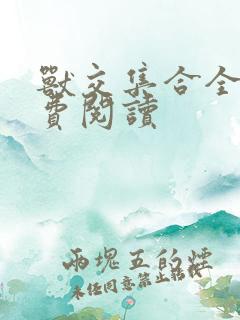 獸交集合全
費閱讀
兩塊五的煙
未任同意禁止轉載